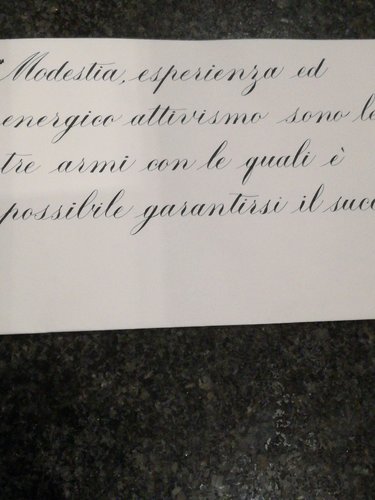 Modestia, esperienza ed
energico attivismo sono le
tre armi con le quali è
possibile garantirsi il succ